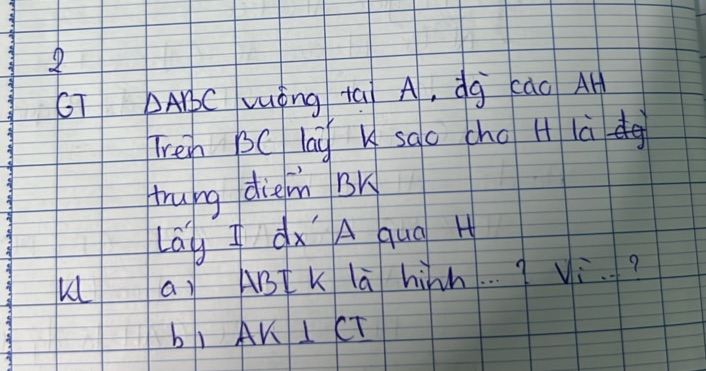 2
GT ΔABC vuông tại A, đg cao AH
Trên BC lấy K sao cho H là đg
trung điểm BK
Lấy I đx A qua H
KL a) ABIK là hình...? Vì...?
b) AK ⊥ CI